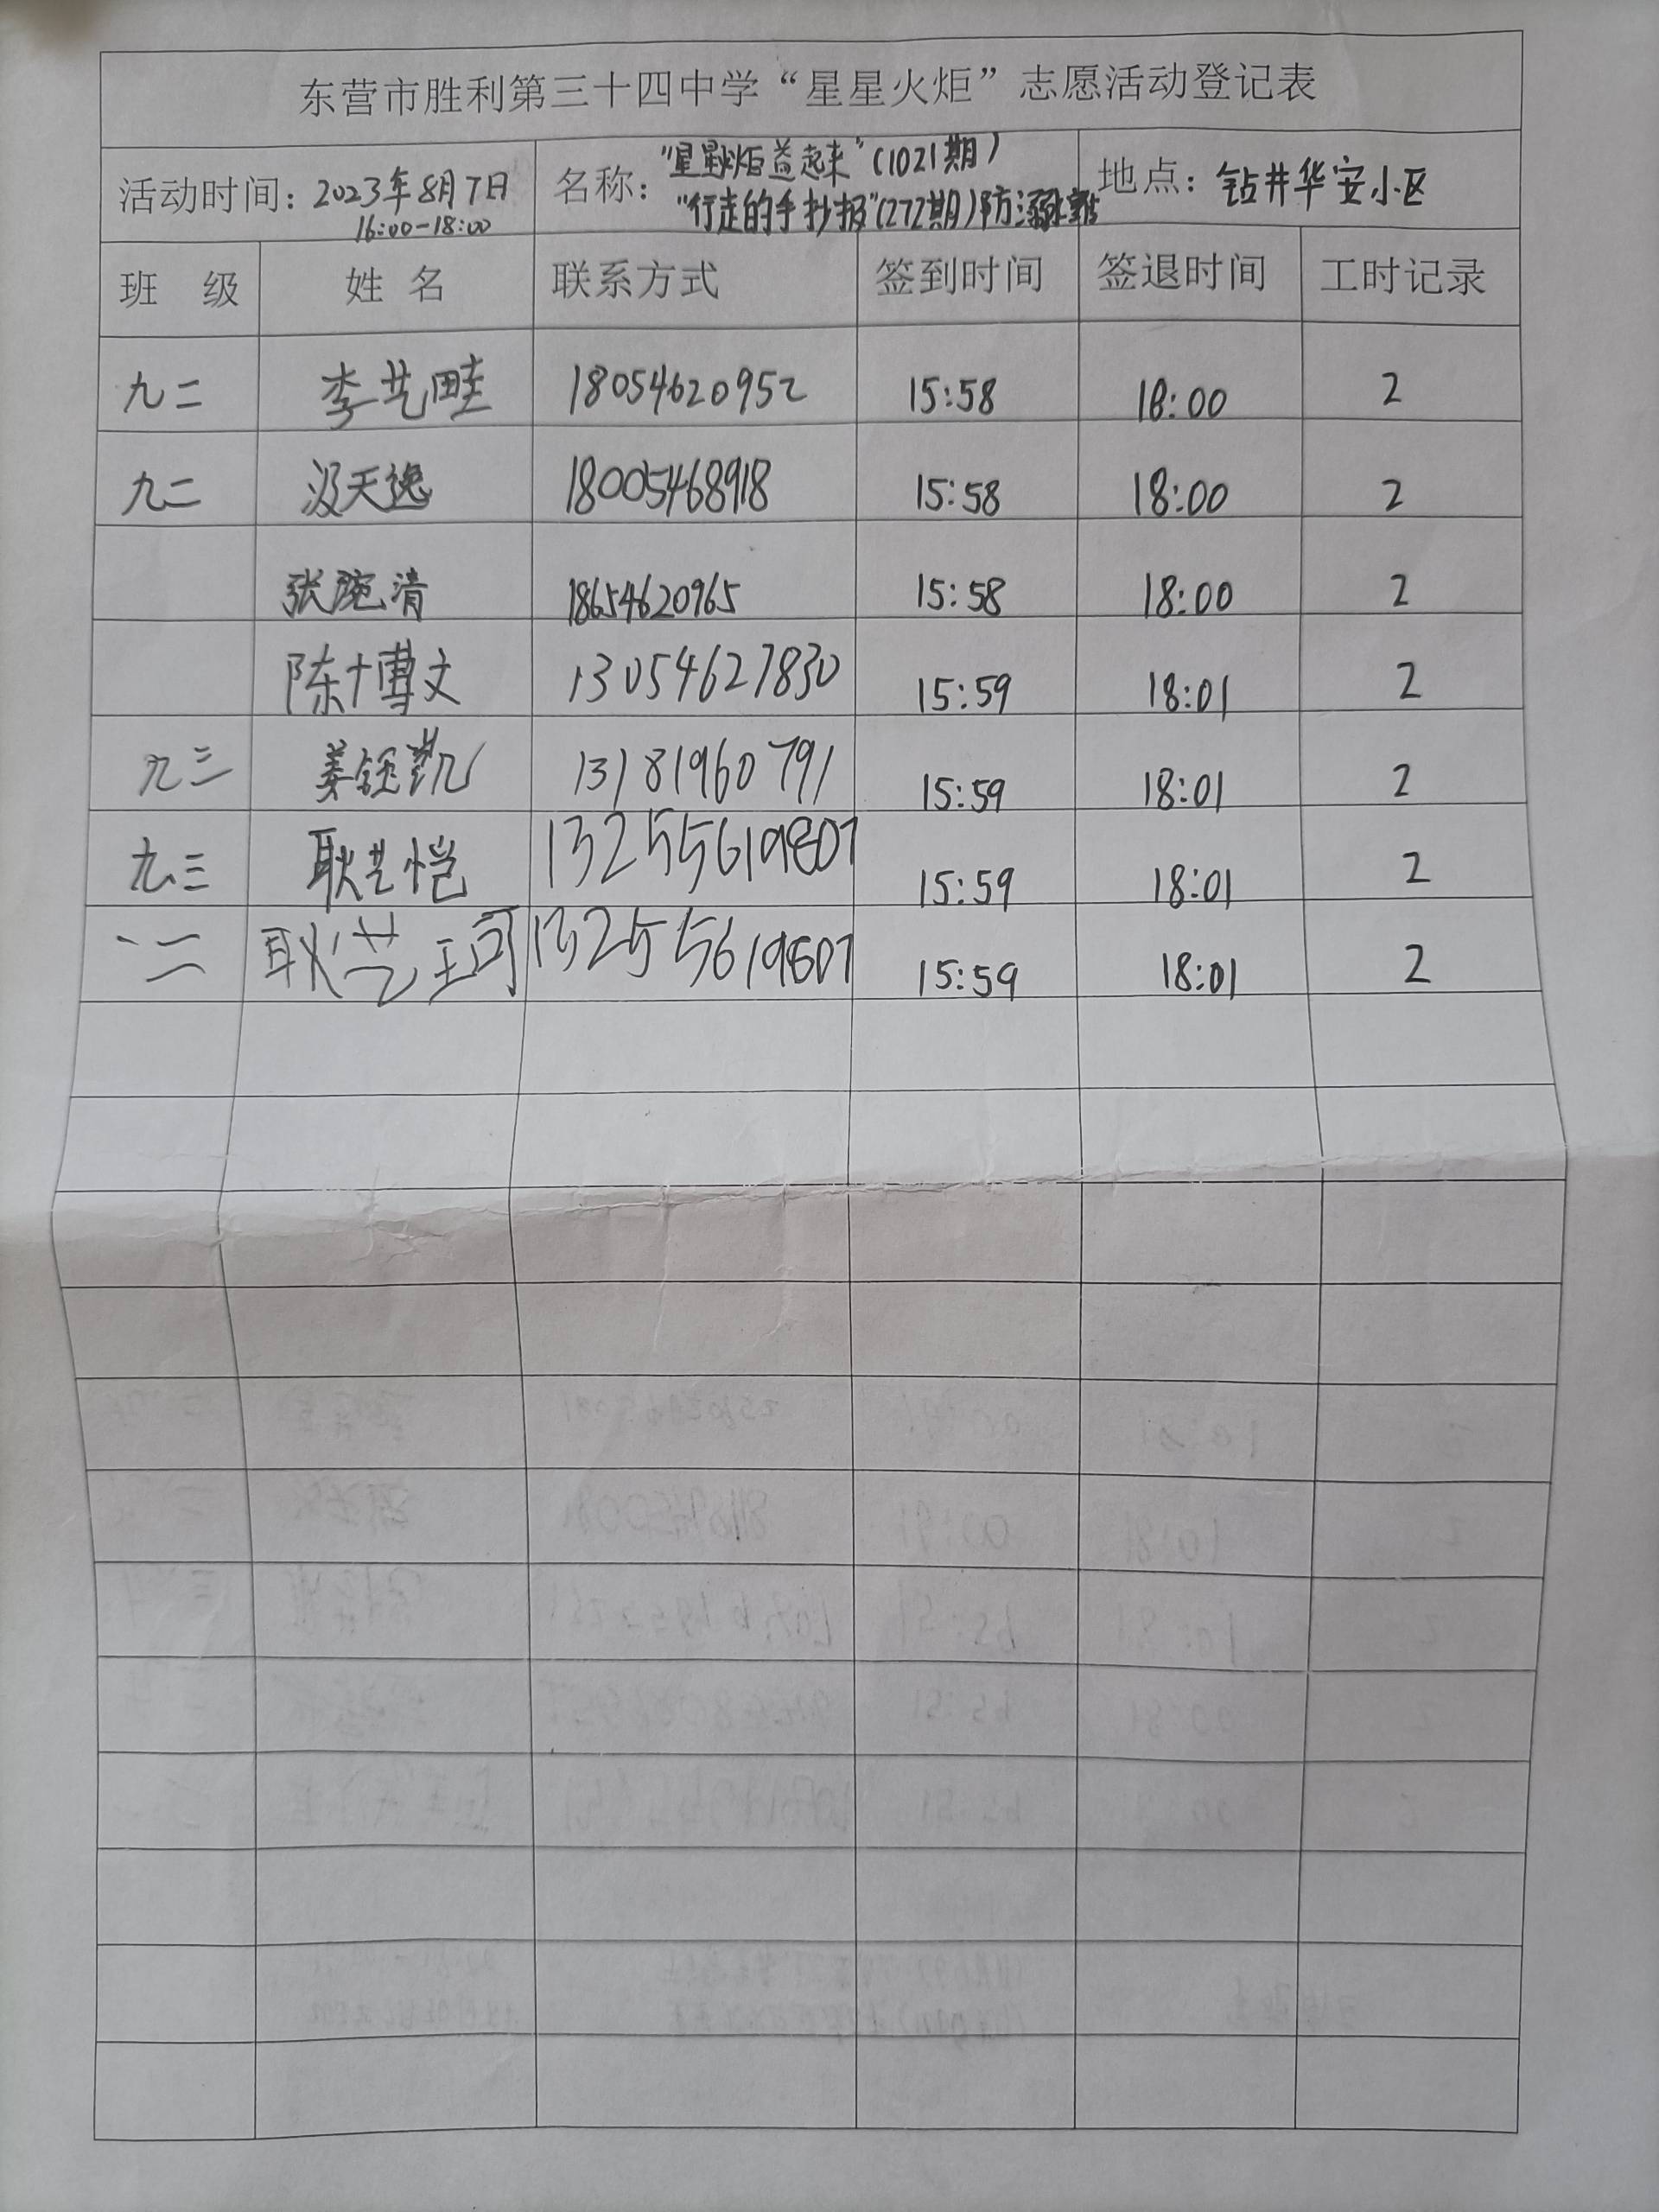 东营市胜利第三十四中学“星星火炬”志愿活动登记表
活动时间：2023年8月7日 16:00-18:00 名称：“星星火炬益起来”（1021期） “行走的手抄报”（272期）防溺水宣传 地点：钻井华安小区
班 级 姓 名 联系方式 签到时间 签退时间 工时记录
九二 李艺畦 18054620952 15:58 18:00 2
九二 汲天逸 18005468918 15:58 18:00 2
张琬清 18654620965 15:58 18:00 2
陈博文 13054627830 15:59 18:01 2
九三 姜钰凯 13181960791 15:59 18:01 2
九三 耿艺恺 13255619807 15:59 18:01 2
一二 耿艺珂 13255619807 15:59 18:01 2